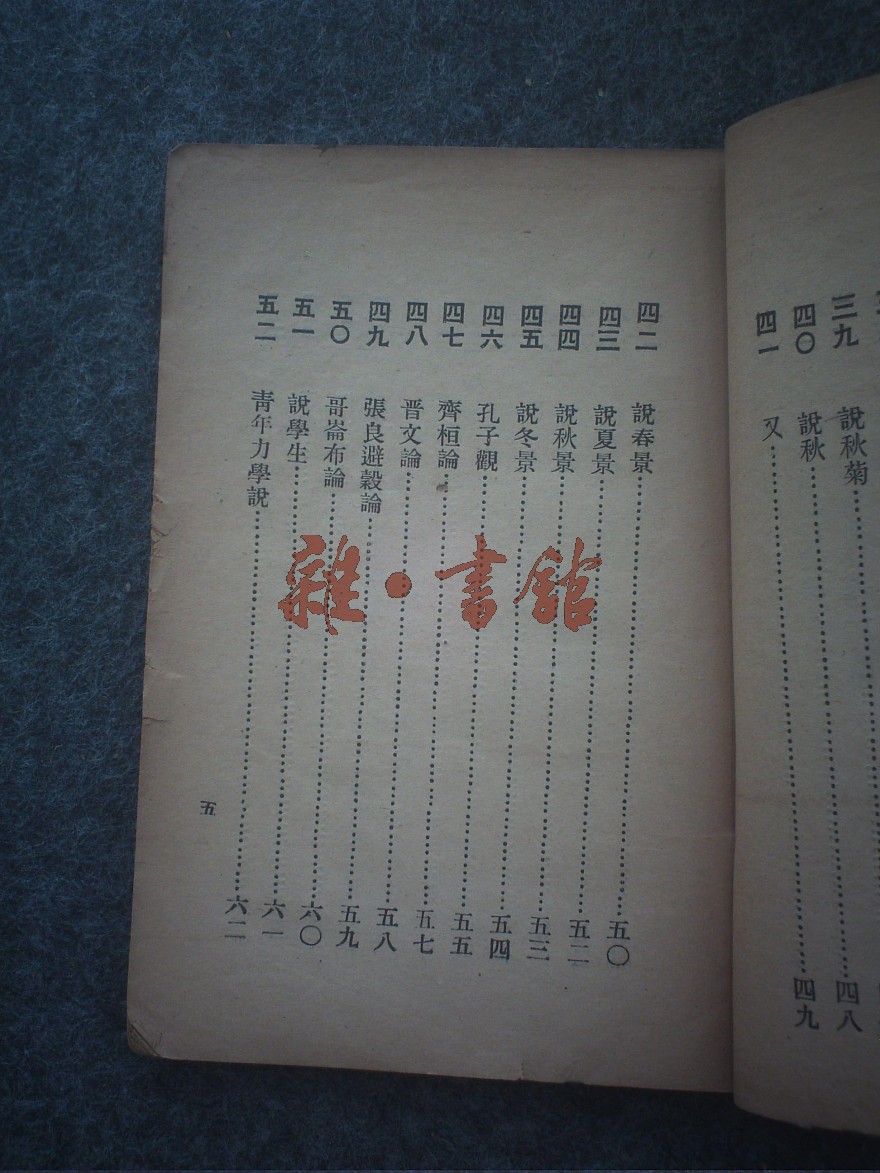 三九 說秋菊 四八
四〇 說秋 四九
四一 又
四二 說春景 五〇
四三 說夏景 五二
四四 說秋景 五三
四五 說冬景 五四
四六 孔子觀 五五
四七 齊桓論 五七
四八 晋文論 五八
四九 張良避穀論 五九
五〇 哥崙布論 六〇
五一 說學生 六一
五二 靑年力學說 六二
五
雜·書館